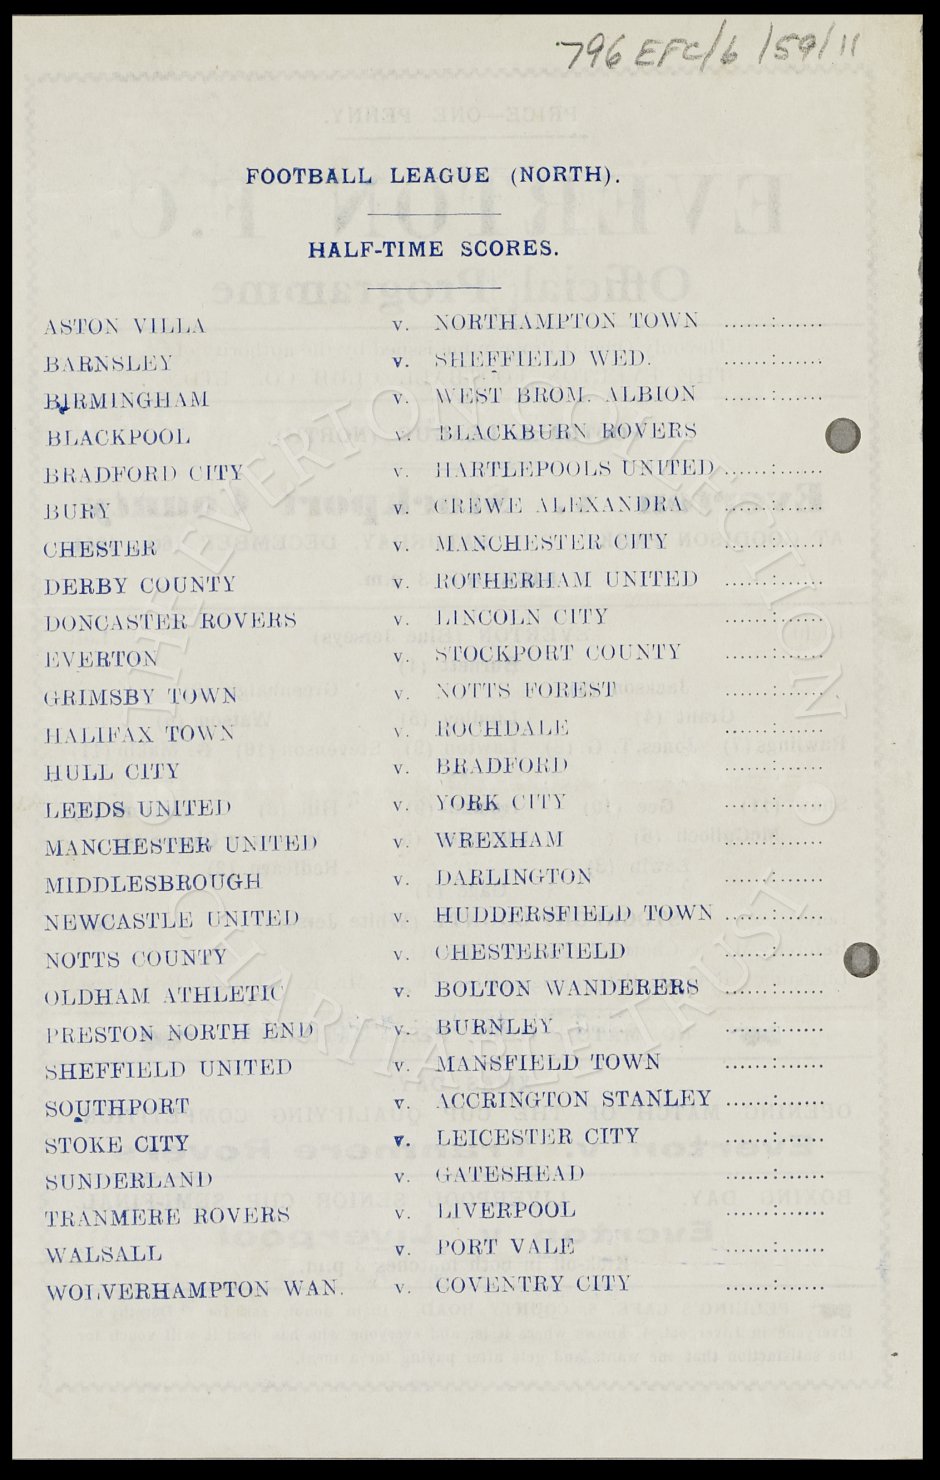 796 EFC/6/59/11
FOOTBALL LEAGUE (NORTH).
HALF-TIME SCORES.
ASTON VILLA v. NORTHAMPTON TOWN ......:......
BARNSLEY v. SHEFFIELD WED. ......:......
BIRMINGHAM v. WEST BROM. ALBION ......:......
BLACKPOOL v. BLACKBURN ROVERS
BRADFORD CITY v. HARTLEPOOLS UNITED ......:......
BURY v. CREWE ALEXANDRA ......:......
CHESTER v. MANCHESTER CITY ......:......
DERBY COUNTY v. ROTHERHAM UNITED ......:......
DONCASTER ROVERS v. LINCOLN CITY ......:......
EVERTON v. STOCKPORT COUNTY ......:......
GRIMSBY TOWN v. NOTTS FOREST ......:......
HALIFAX TOWN v. ROCHDALE ......:......
HULL CITY v. BRADFORD ......:......
LEEDS UNITED v. YORK CITY ......:......
MANCHESTER UNITED v. WREXHAM ......:......
MIDDLESBROUGH v. DARLINGTON ......:......
NEWCASTLE UNITED v. HUDDERSFIELD TOWN ......:......
NOTTS COUNTY v. CHESTERFIELD ......:......
OLDHAM ATHLETIC v. BOLTON WANDERERS ......:......
PRESTON NORTH END v. BURNLEY ......:......
SHEFFIELD UNITED v. MANSFIELD TOWN ......:......
SOUTHPORT v. ACCRINGTON STANLEY ......:......
STOKE CITY v. LEICESTER CITY ......:......
SUNDERLAND v. GATESHEAD ......:......
TRANMERE ROVERS v. LIVERPOOL ......:......
WALSALL v. PORT VALE ......:......
WOLVERHAMPTON WAN. v. COVENTRY CITY ......:......
THE EVERTON COLLECTION
CHARITABLE TRUST